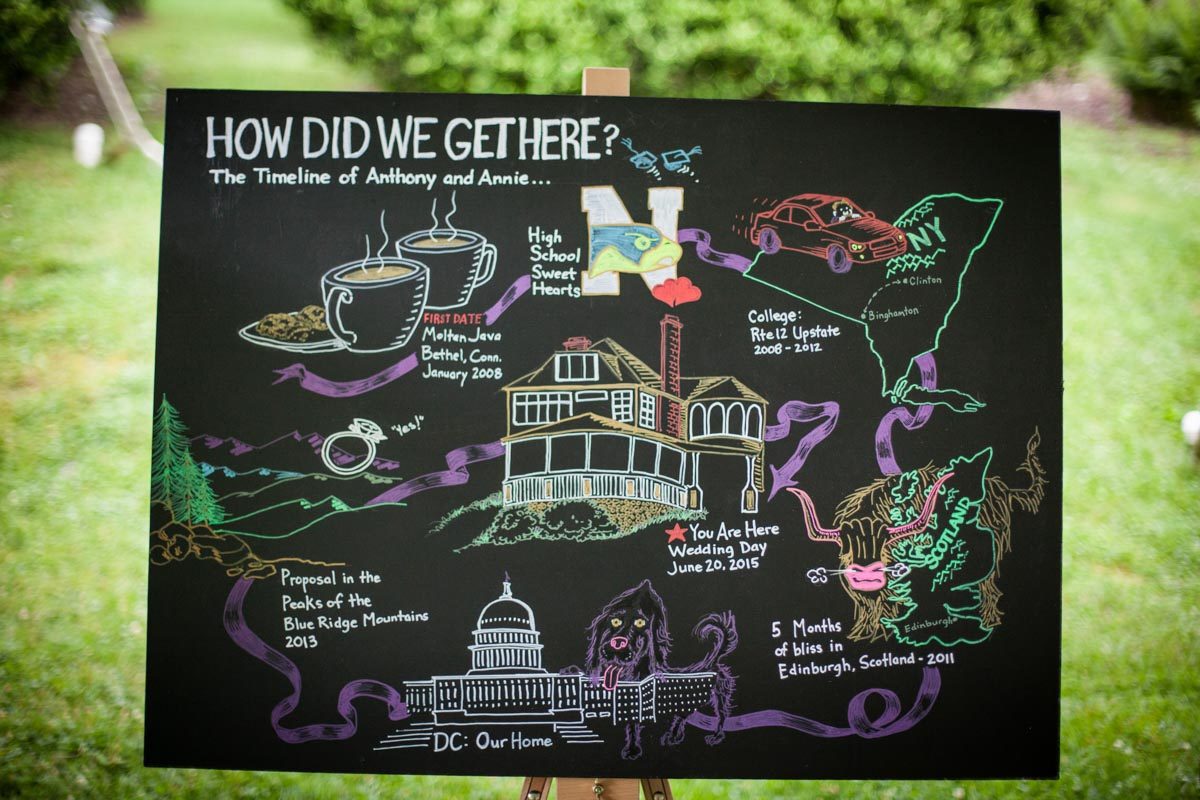 HOW DID WE GET HERE?
The Timeline of Anthony and Annie...
N
High
School
Sweet
Hearts
FIRST DATE
Molten Java
Bethel, Conn.
January 2008
NY
Clinton
Binghamton
College:
Rte 12 Upstate
2008 - 2012
"Yes!"
You Are Here
Wedding Day
June 20, 2015
SCOTLAND
Edinburgh
5 Months
of bliss in
Edinburgh, Scotland - 2011
Proposal in the
Peaks of the
Blue Ridge Mountains
2013
DC: Our Home